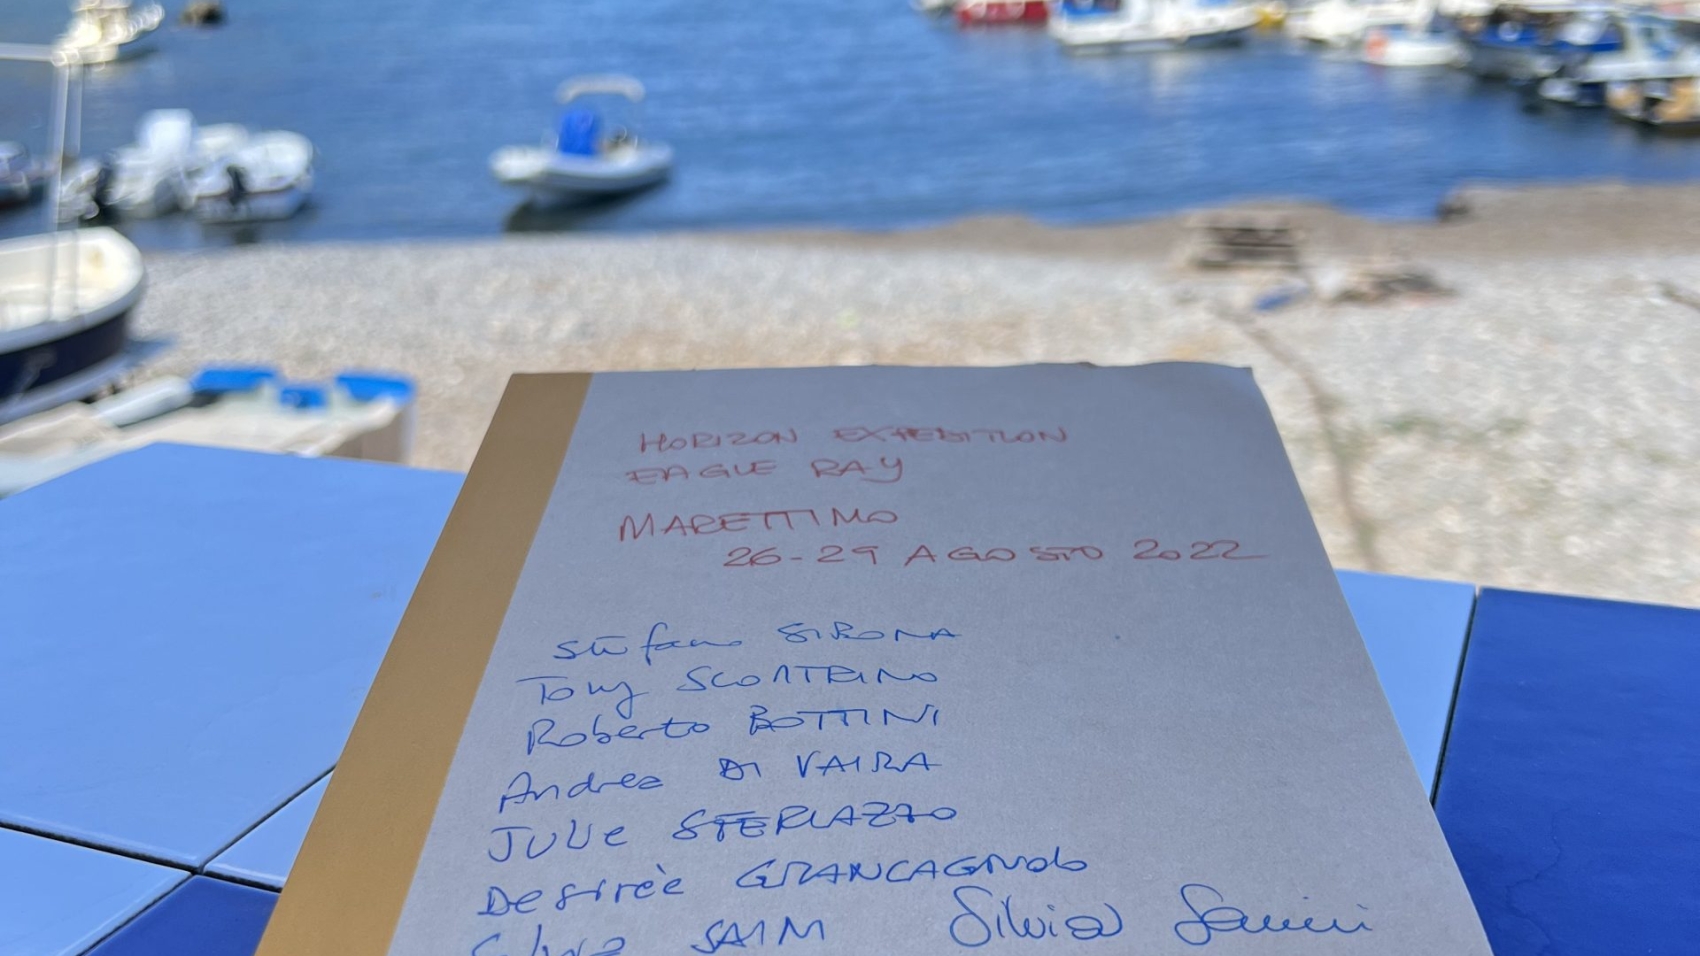 HORIZON EXPEDITION
EAGLE RAY
MARETTIMO
26-29 AGOSTO 2022
Stefano SIRONA
Tony SCONTRINO
Roberto BOTTINI
Andrea DI VAIRA
JULIE STERLAZZO
Desirèe GRANCAGNOLO
Silvia